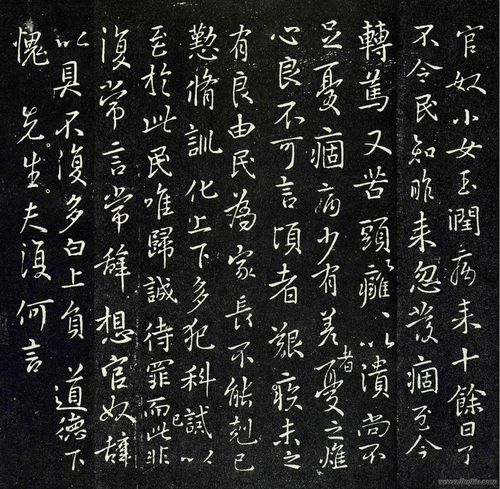 官奴小女玉潤病来十餘日了
不令民知昨来忽發痼至今
轉篤又苦頭癰頭癰以潰尚不
足憂痼病少有差者憂之燋
心良不可言頃者艱疾未之
有良由民為家長不能剋己
懃脩訓化上下多犯科誡以
至於此民唯歸誠待罪而已此非
復常言常辞想官奴辞
以具不復多白上負道德下
愧先生夫復何言